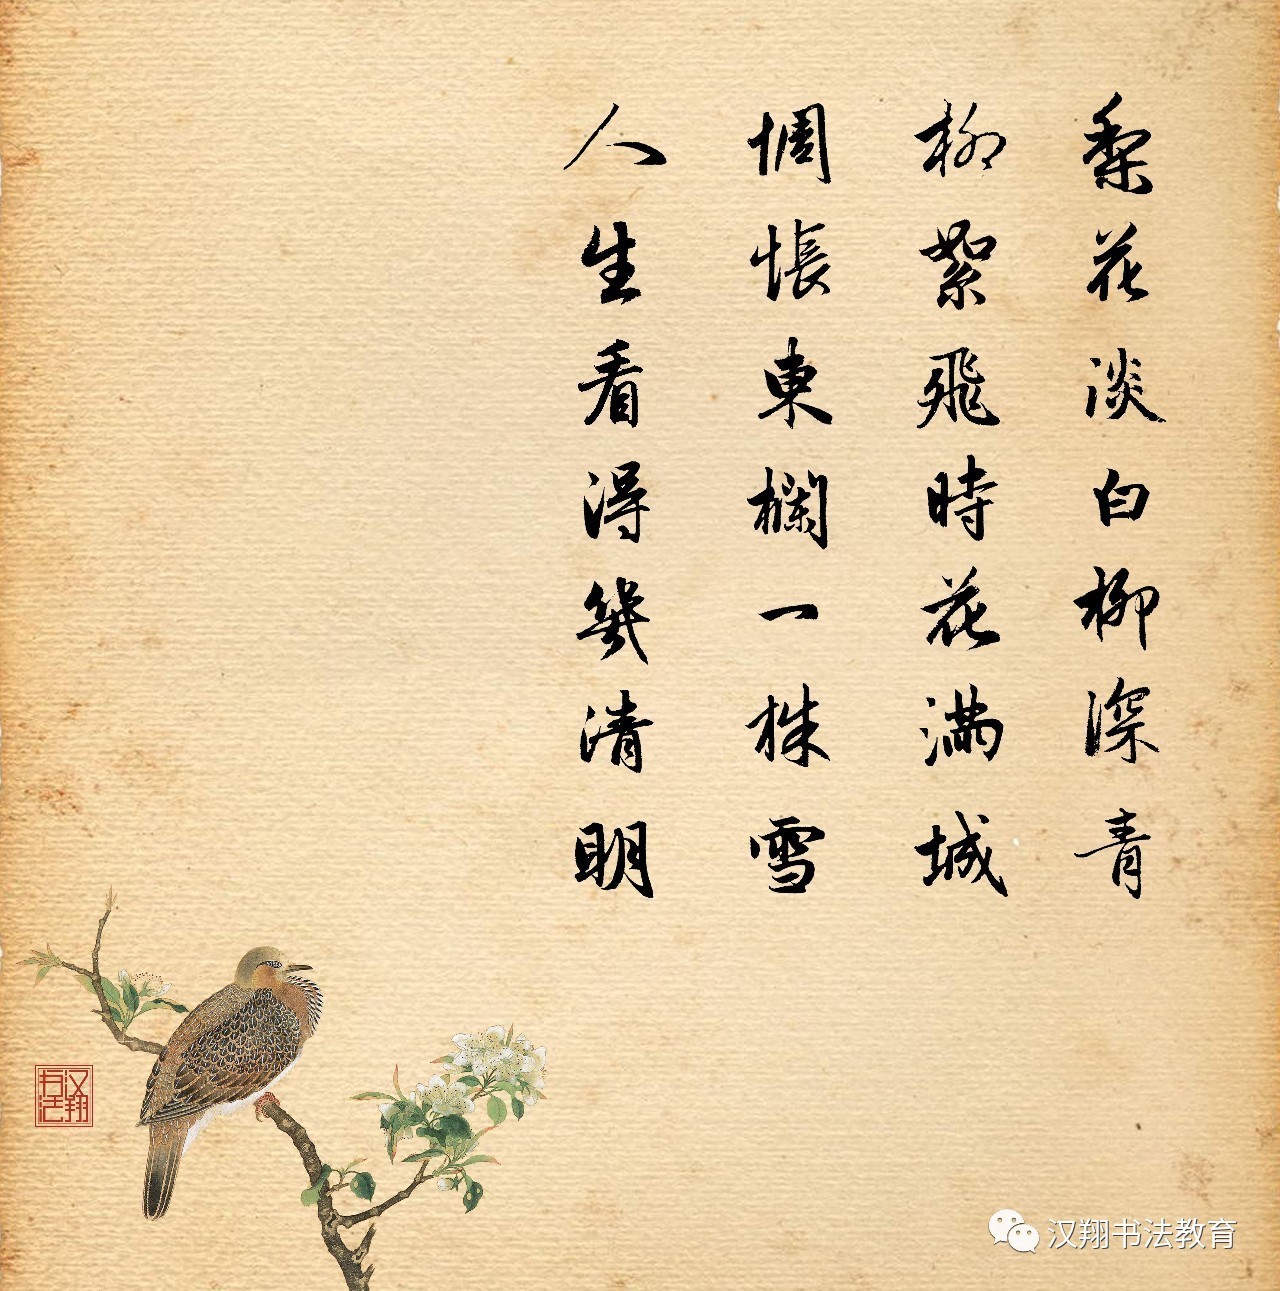 梨花淡白柳深青
柳絮飛時花满城
惆悵東欄一株雪
人生看得幾清明
汉翔书法
汉翔书法教育